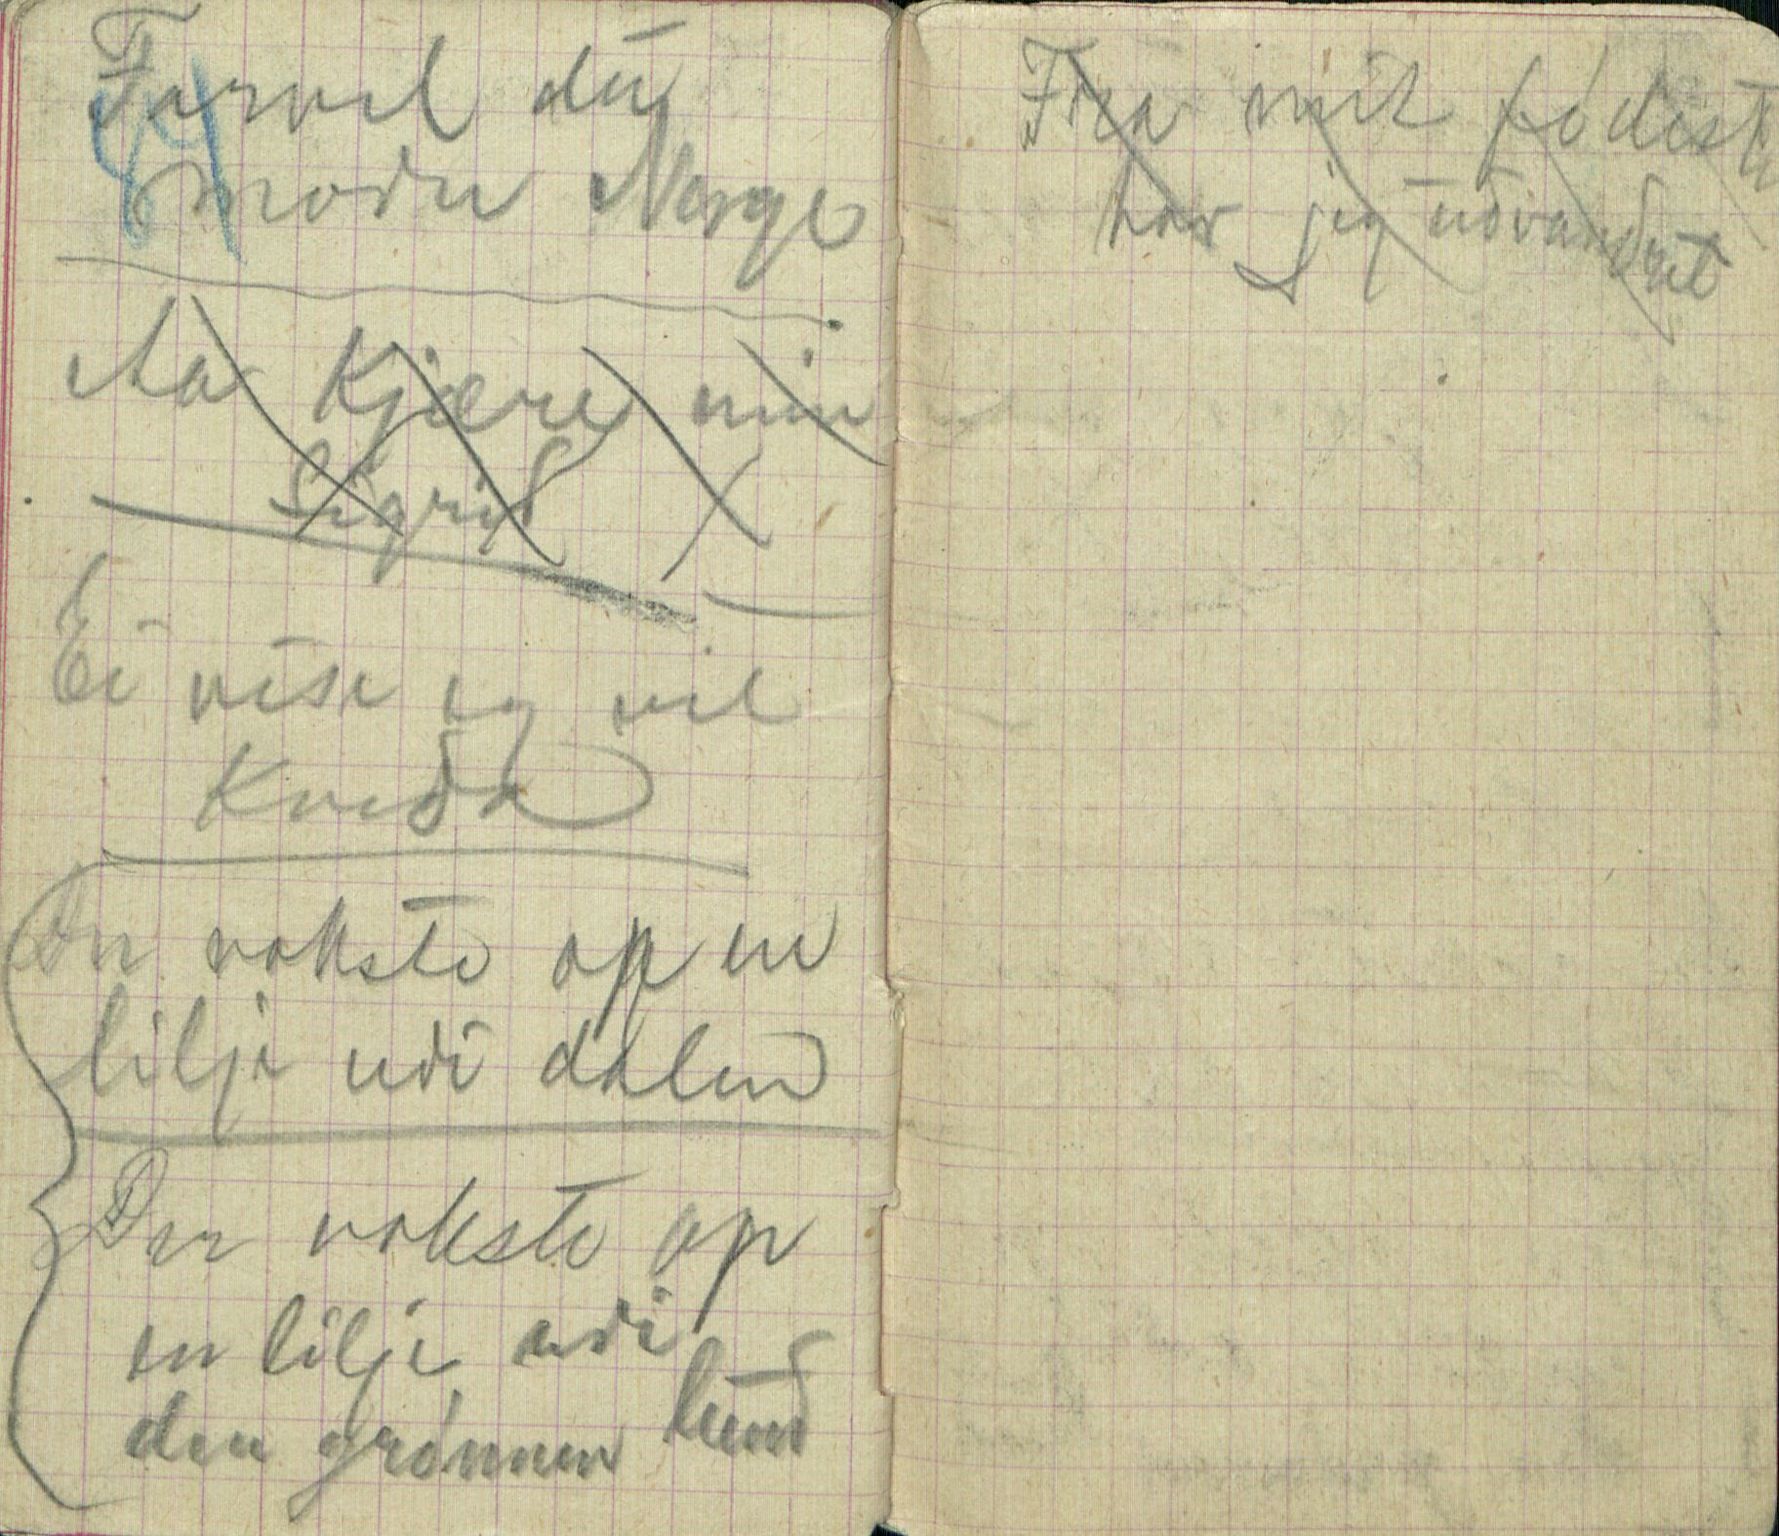 Farvel du
moder Norge
Aa Kjære min
Sigrid
Ei vise eg vil
Kveda
Der vokste op en
lilje udi dalen
Der vokste op
en lilje udi
den grønnen lund
Fra mit fødested
har jeg udvandret